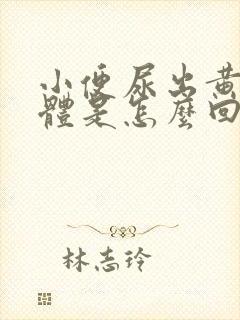 小便尿出黃
體是怎麼回
林志玲